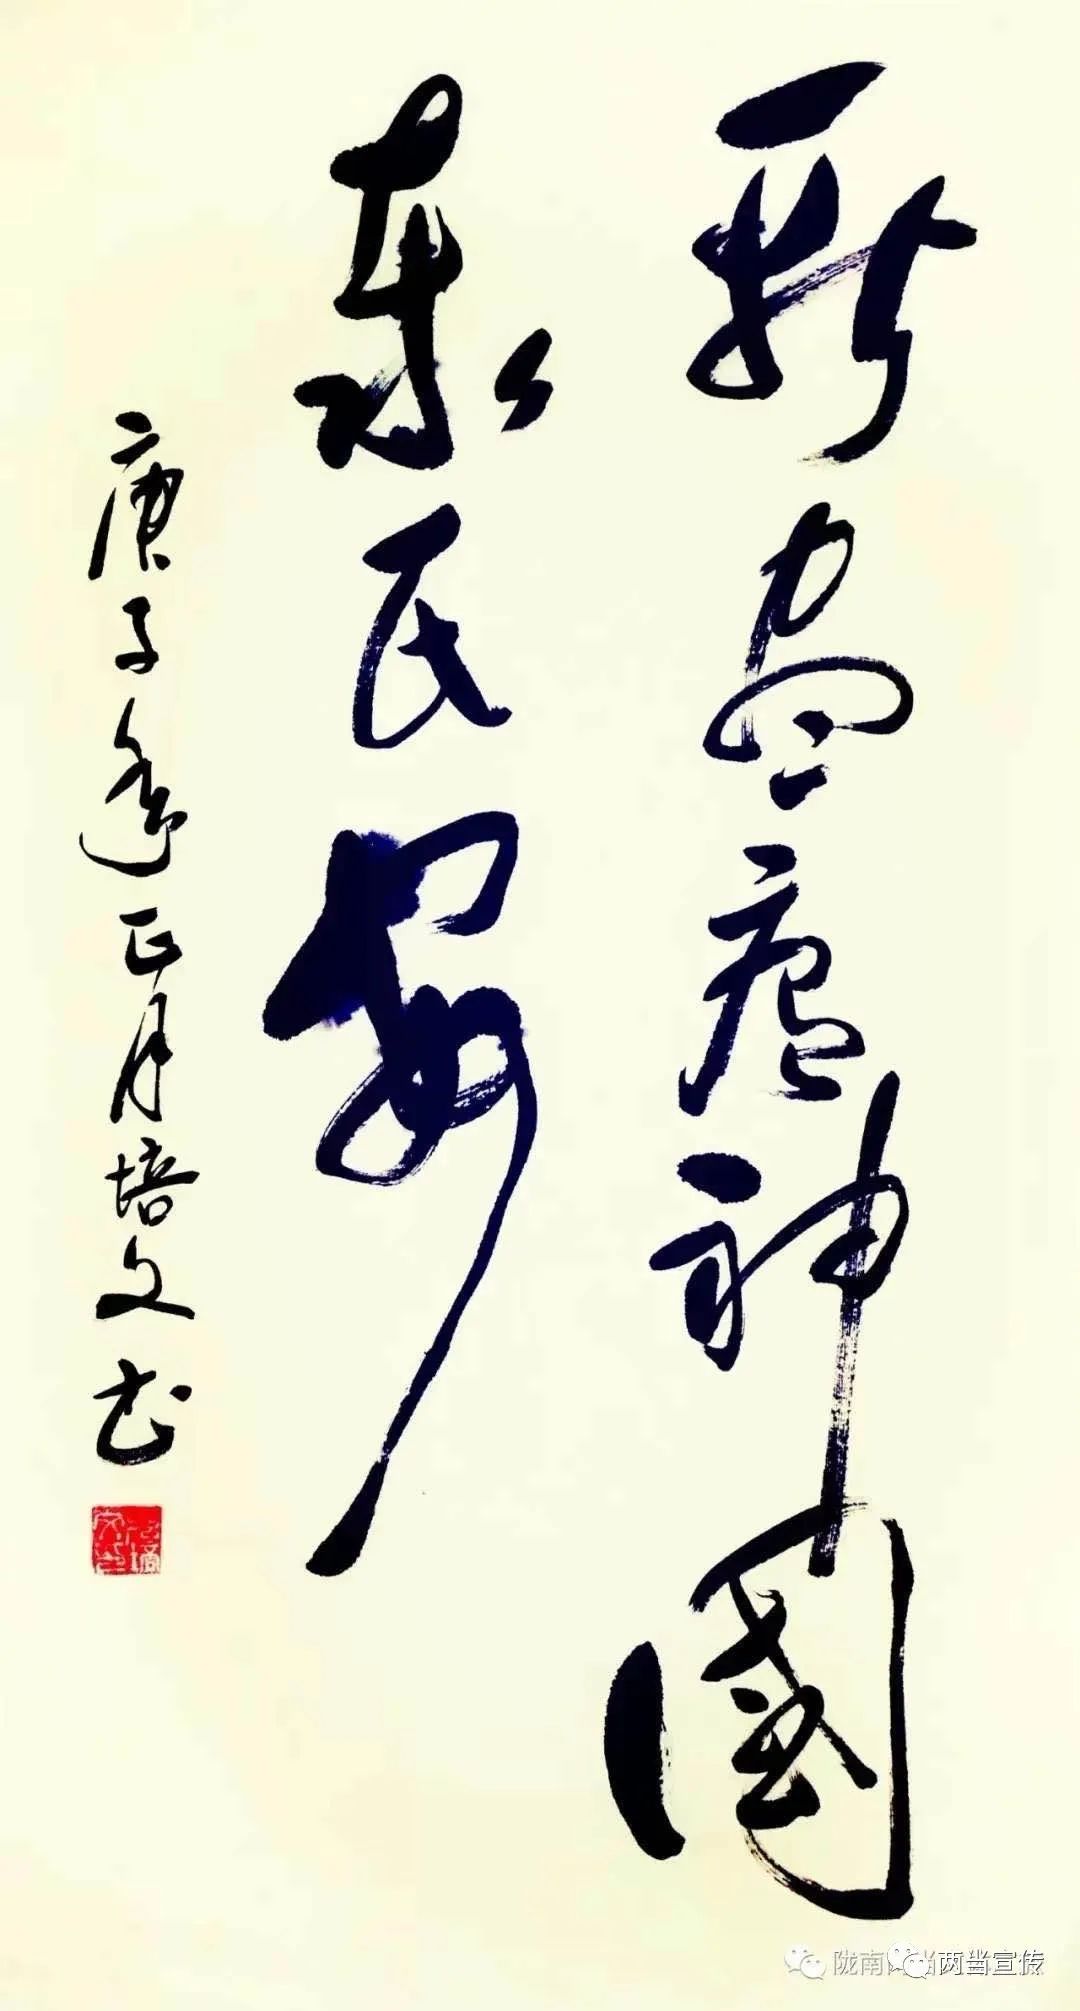 斬盡瘟神國
泰民安
庚子逢正月培文书
陇南
两当宣传